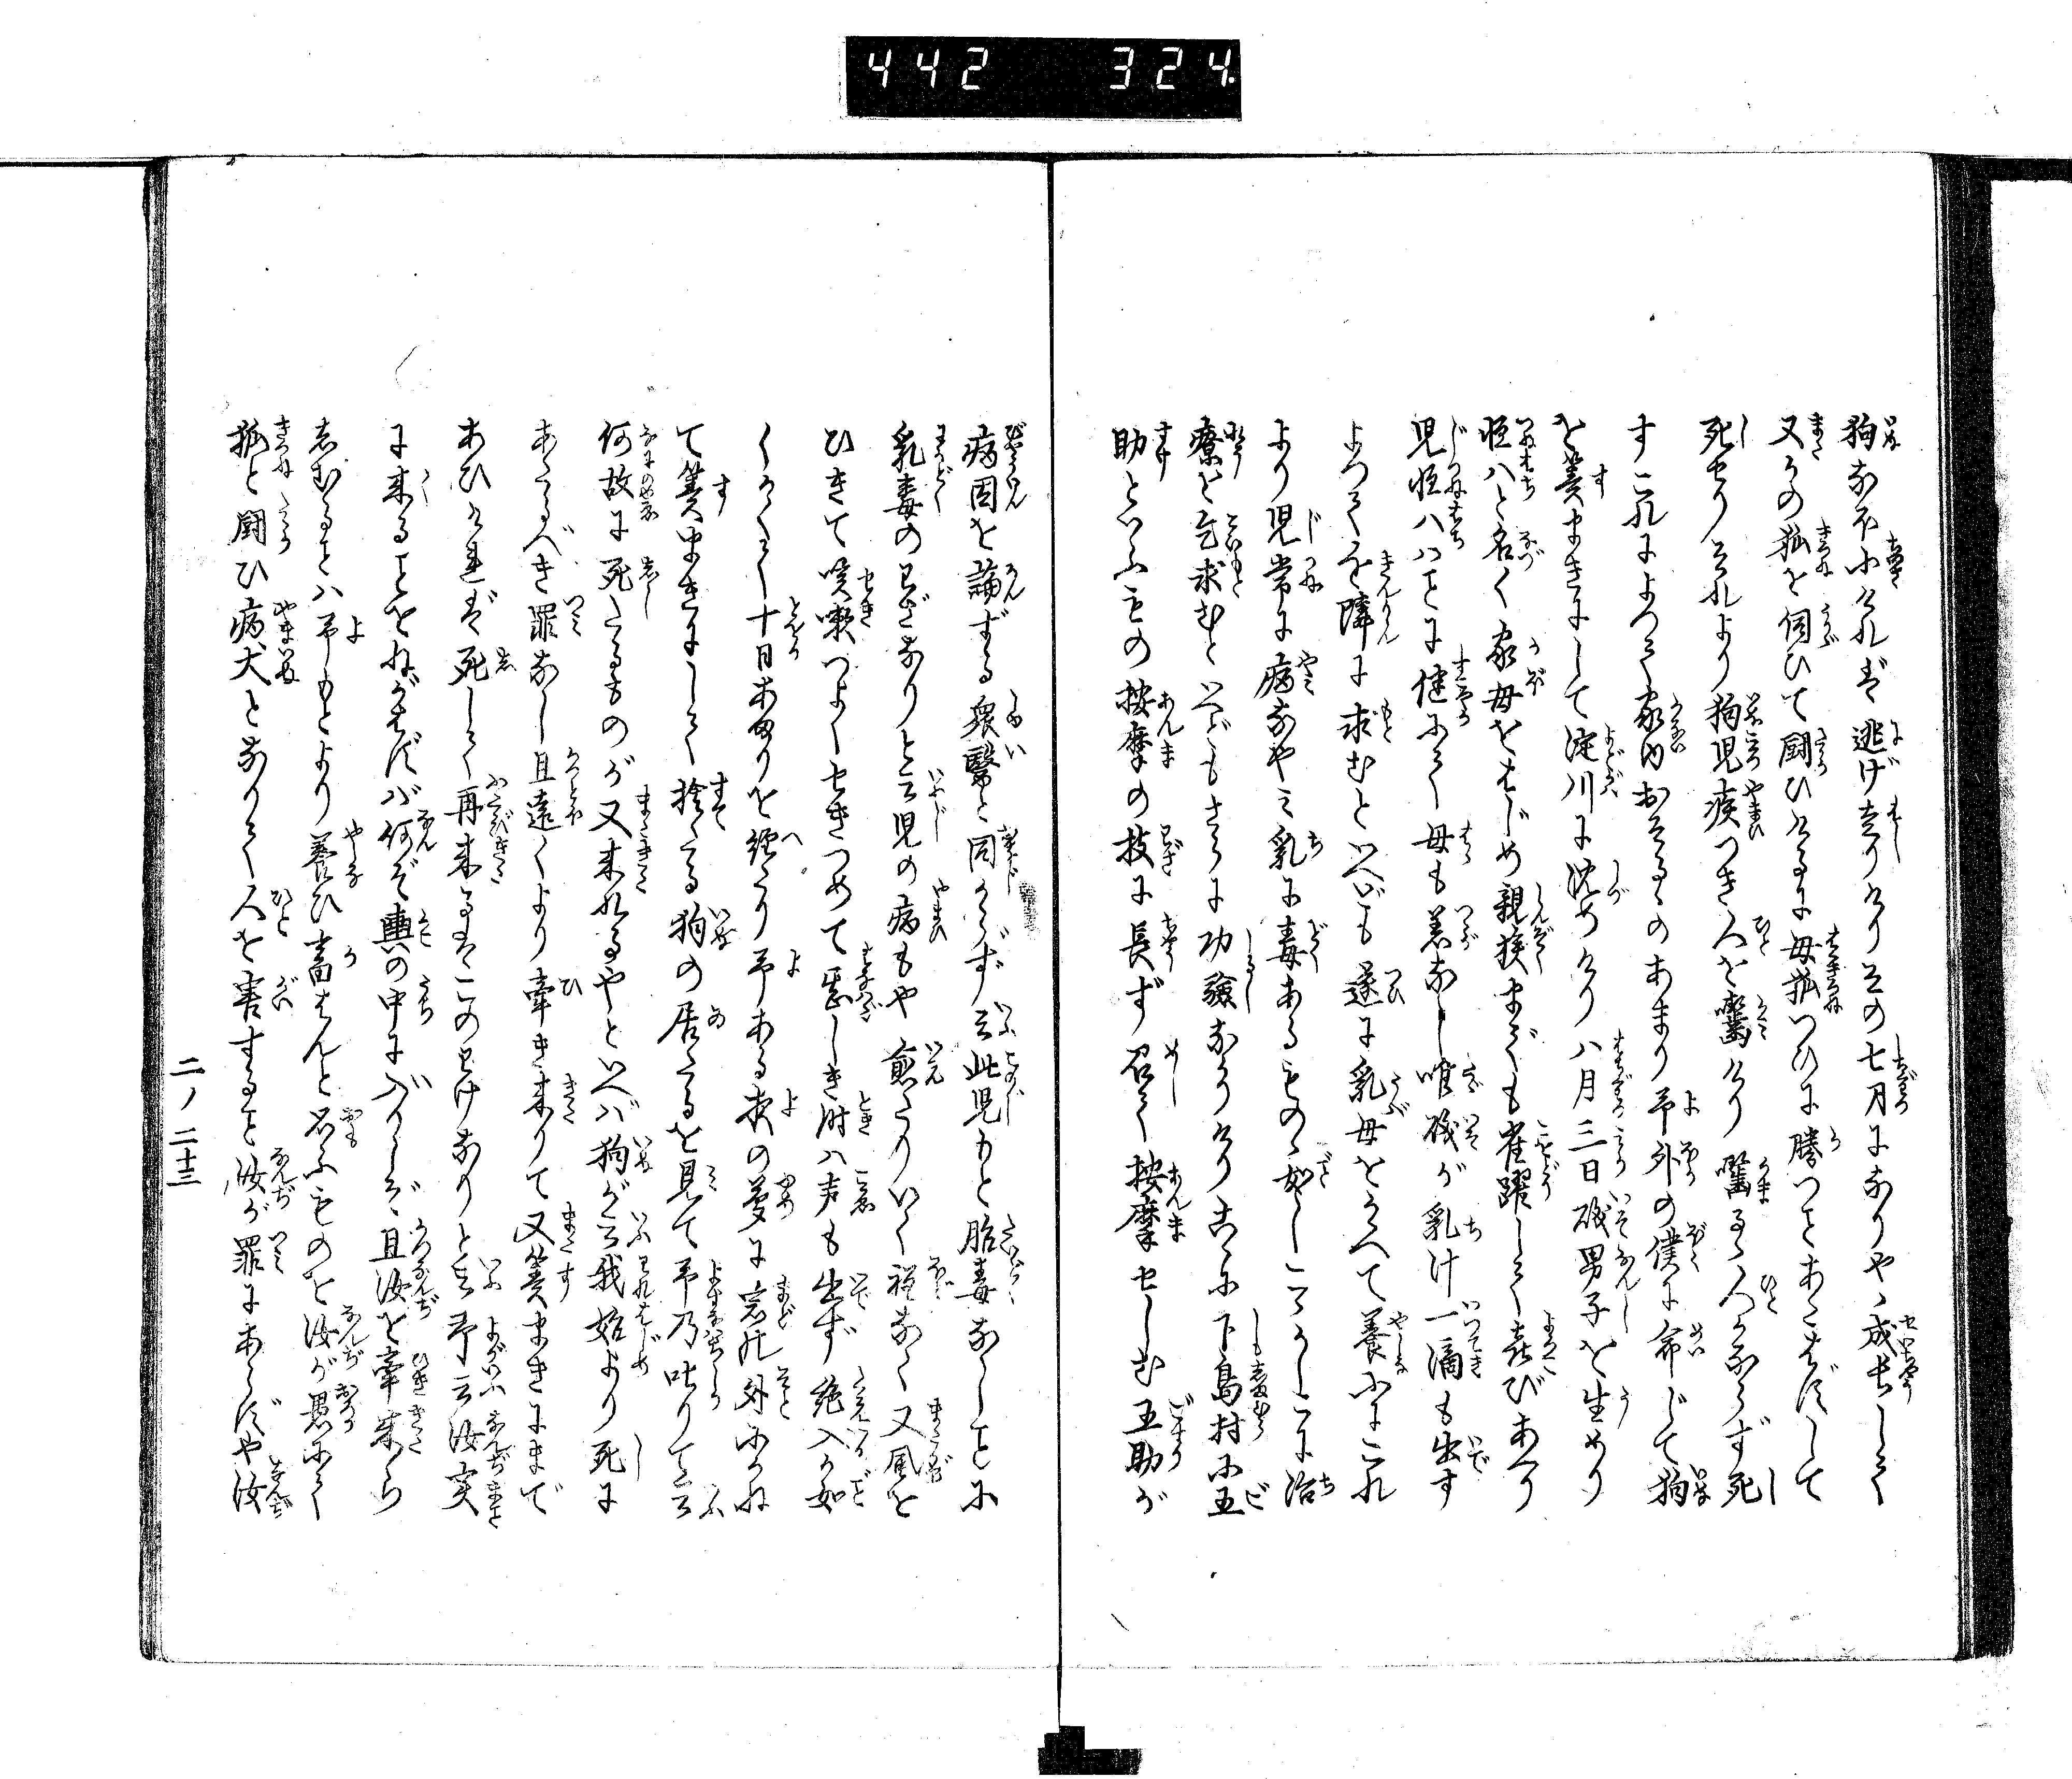 442 324
狗なほ小ければ逃げ走りけりその七月になりやゝ成長して
又かの狐を伺ひて闘ひけるに母狐つひに勝つことあたはずして
死せりそれより狗児疾つき人を齧めり齧るゝ人かならず死
すこれによつて家内おそるゝのあまり予外の僕に命じて狗
を簀まきにして淀川に沈めけり八月三日磯男子を生めり
恒八と名く家母をはじめ親族までも雀躍して喜びあへり
児恒八はことに健にして母も恙なし唯磯が乳汁一滴も出す
よつて近隣に求むといへども遂に乳母をかゝへて養ふにこれ
より児常に病なやみ乳に毒あるものゝ如しこゝかしこに治
療を乞求むといへどもさらに功験なかりけり爰に下島村に五
助といふもの按摩の技に長ず召て按摩せしむ五助が
病因を論ずる衆醫と同からず云此児もと胎毒なしことに
乳毒のわざなりと云児の病もや愈たりいく程なく又風を
ひきて咳嗽つよくせきつめて甚しき時は声も出ず絶入か如
くかくて十日あまりを經たり予ある夜の夢に窓の外にかね
て簀まきにして捨たる狗の居たるを見て予乃叱りて云
何故に死たるものが又来れるやといへば狗が云我始より死に
あたるべき罪なし且遠くより牽き来りて又簀まきにまで
あひければ死して再来るはこのわけなりと云予云汝実
に来ることをねがはずバ何ぞ輿の中に入りしぞ且汝を牽来ら
しむることは予もとより養ひ畜はんと思ふものを汝が愚にして
狐と闘ひ病犬となりて人を害すること汝が罪にあらずや汝
二ノ二十三